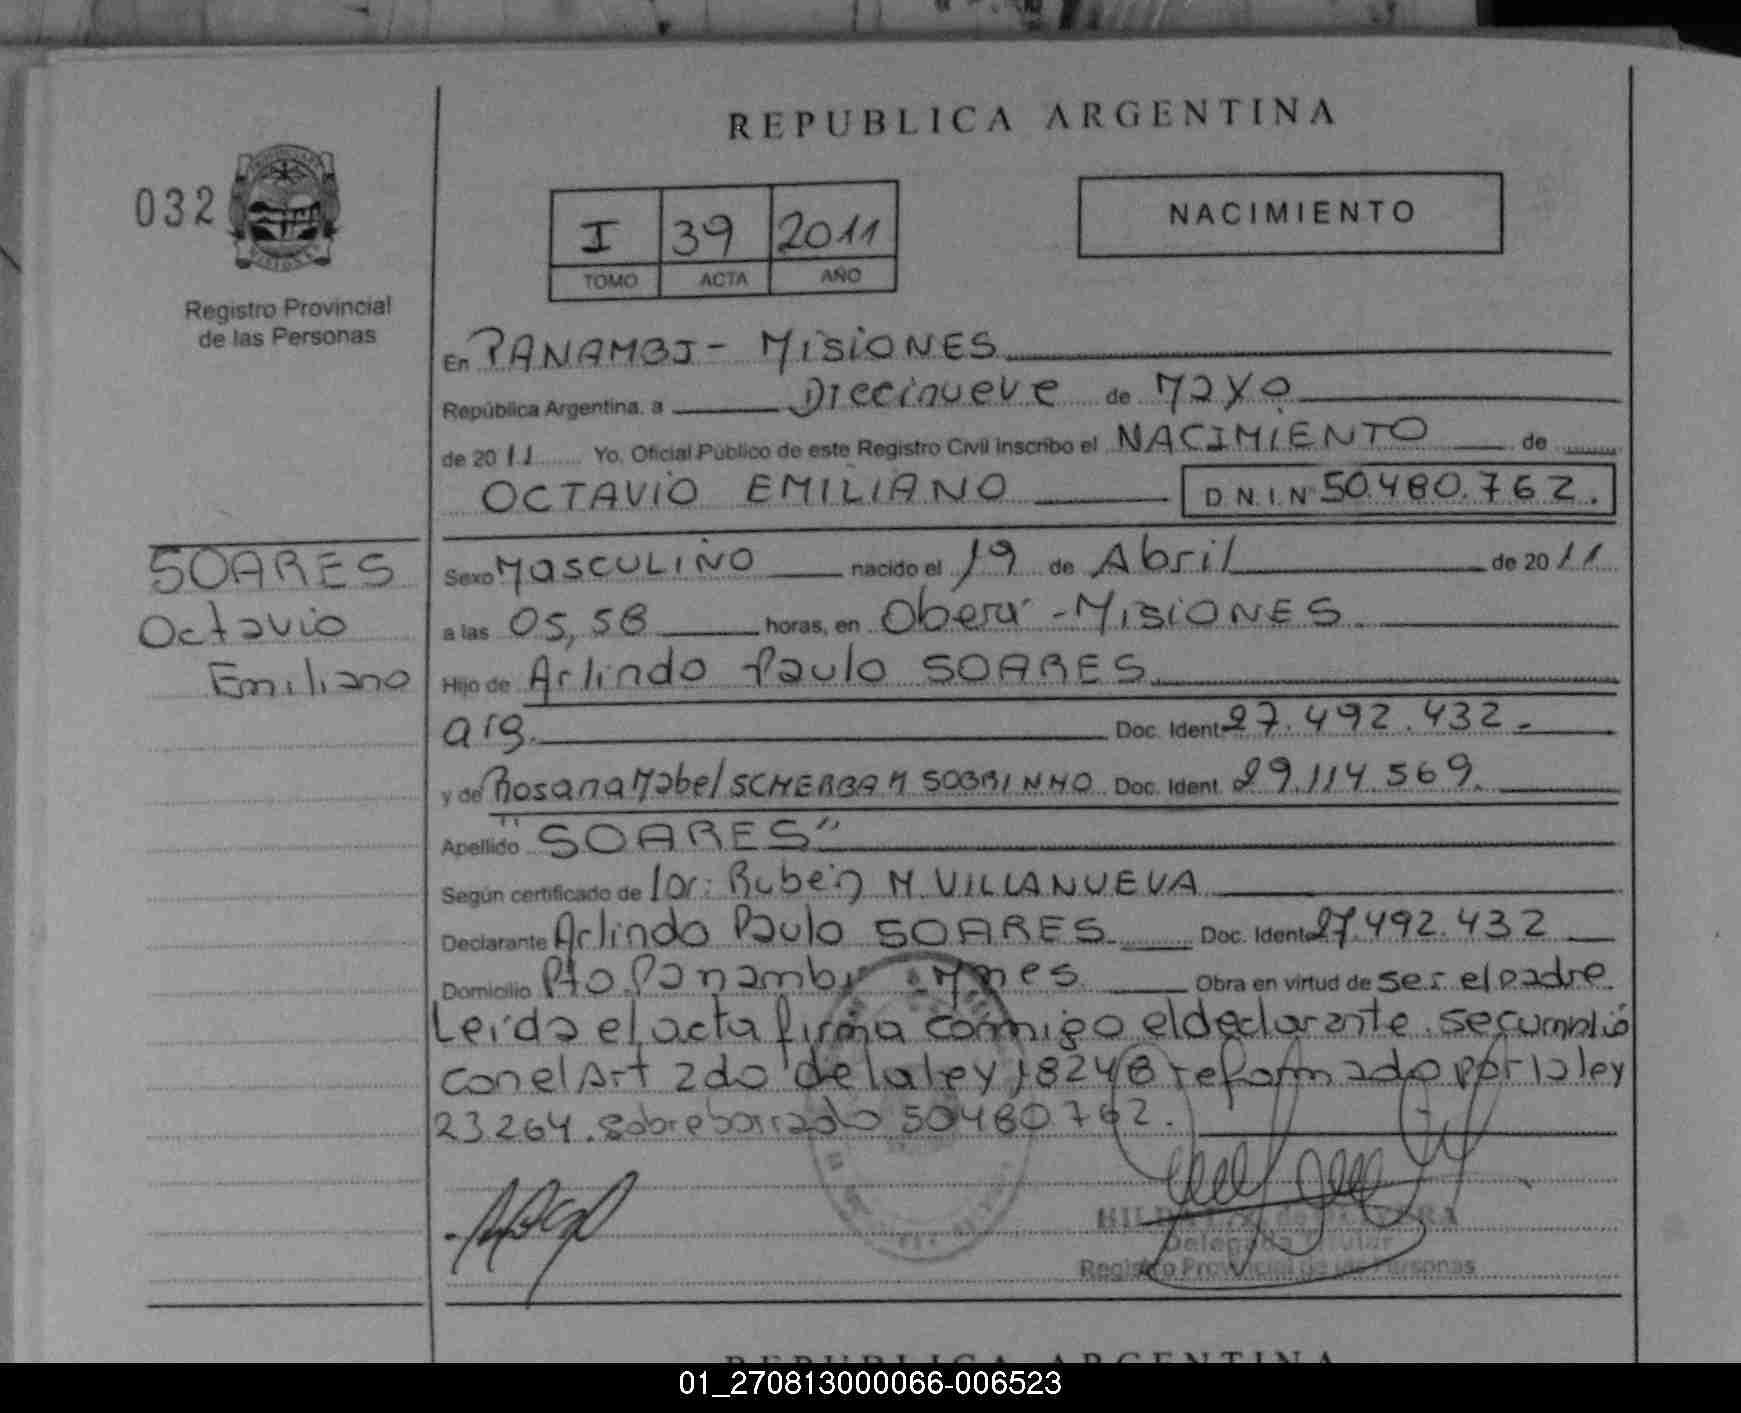 REPUBLICA ARGENTINA
032
Registro Provincial
de las Personas
I 39 2011
TOMO ACTA AÑO
NACIMIENTO
En PANAMBI - MISIONES
República Argentina, a Diecinueve de Mayo
de 2011 Yo, Oficial Público de este Registro Civil inscribo el NACIMIENTO de
OCTAVIO EMILIANO D.N.I.Nº 50.480.762.
SOARES
Octavio
Emiliano
Sexo MASCULINO nacido el 19 de Abril de 2011
a las 05,58 horas, en Oberá - MISIONES.
Hijo de Arlindo Paulo SOARES
arg. Doc. Ident. 27.492.432.-
y de Rosana Mabel SCHERBAM SOBRINHO Doc. Ident. 29.114.569.
Apellido "SOARES"
Según certificado de Dr: Rubén M VILLANUEVA
Declarante Arlindo Paulo SOARES Doc. Ident. 27.492.432
Domicilio Pto Panambi - Mnes Obra en virtud de ser el padre.
Leída el acta firma conmigo el declarante. se cumplió
con el Art 2do de la ley 18248 reformado por la ley
23.264. sobreborrado 50480762.
Delegada Titular
Registro Provincial de las Personas
REPUBLICA ARGENTINA
01_270813000066-006523